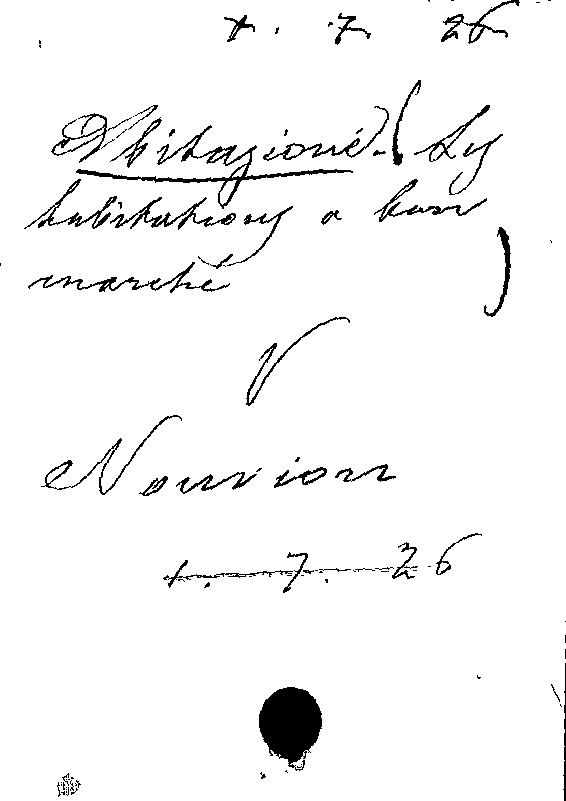 +. 7. 26
Abitazioné. (Les
habitations a bon
marché )
V
Nouvion
+. 7. 26